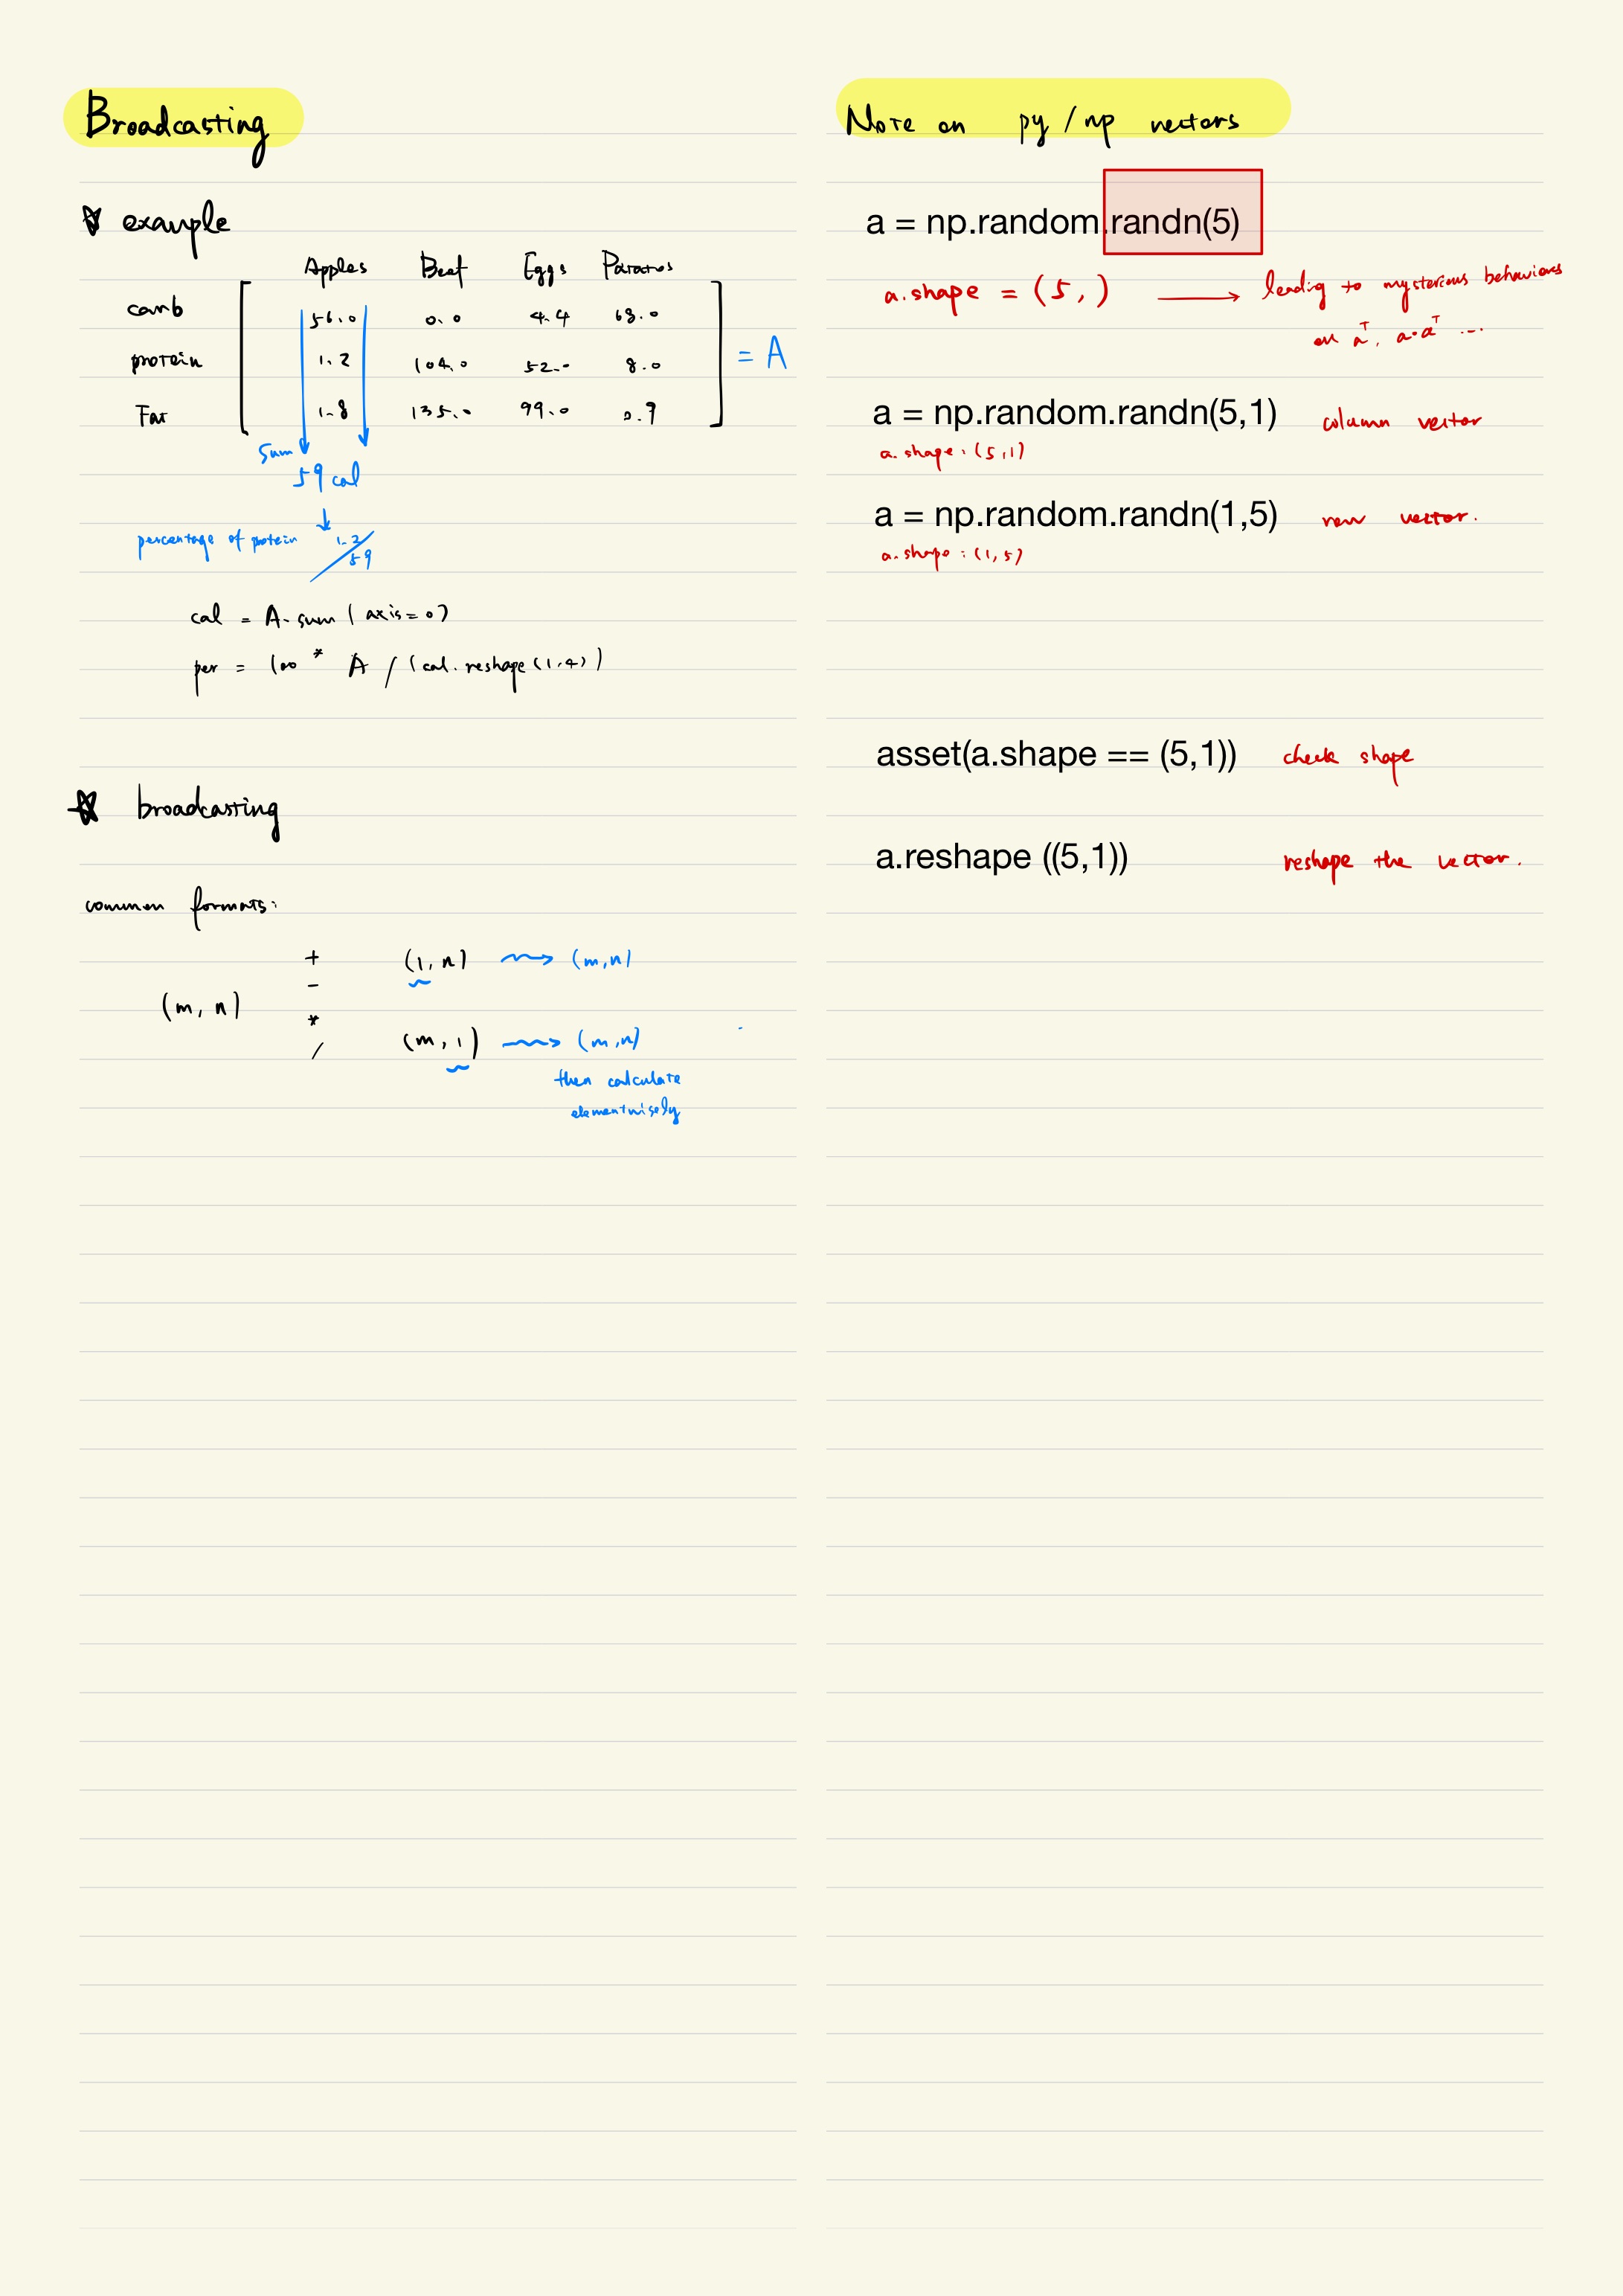 Broadcasting
example
Apples Beef Eggs Potatoes
carb 56.0 0.0 4.4 68.0
protein 1.2 104.0 52.0 8.0
Fat 1.8 135.0 99.0 0.9
= A
Sum
59 cal
percentage of protein 1.2/59
cal = A.sum (axis=0)
per = 100 * A / (cal.reshape(1,4))
broadcasting
common formats:
+ (1, n) (m,n)
-
(m, n)
*
(m, 1) (m,n)
/
then calculate
elementwisely
Note on py/np vectors
a = np.random.randn(5)
a.shape = (5, ) → leading to mysterious behaviors
on aᵀ, a·aᵀ ...
a = np.random.randn(5,1) column vector
a.shape: (5,1)
a = np.random.randn(1,5) row vector.
a.shape: (1,5)
asset(a.shape == (5,1)) check shape
a.reshape ((5,1)) reshape the vector.